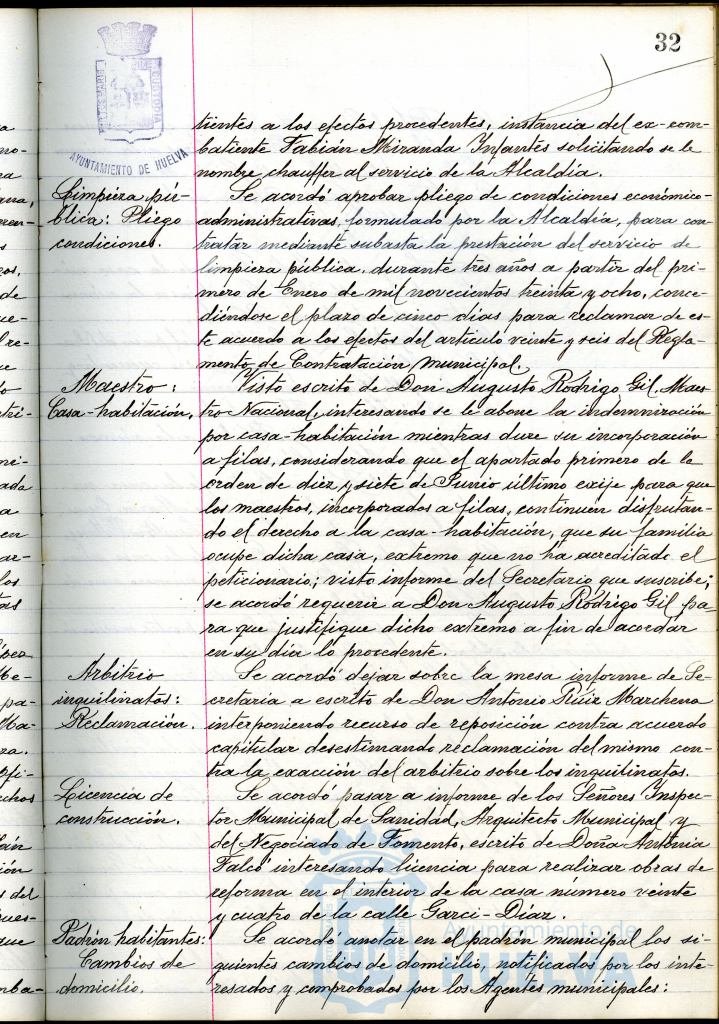 32
AYUNTAMIENTO DE HUELVA
tientes a los efectos procedentes, instancia del ex-com-
batiente Fabián Miranda Infantes solicitando se le
nombre chauffer al servicio de la Alcaldía.
Limpieza pú-
blica: Pliego
condiciones.
Se acordó aprobar pliego de condiciones económico-
administrativas, formulado por la Alcaldía, para con-
tratar mediante subasta la prestación del servicio de
limpieza pública, durante tres años a partir del pri-
mero de Enero de mil novecientos treinta y ocho, conce-
diéndose el plazo de cinco días para reclamar de es-
te acuerdo a los efectos del artículo veinte y seis del Regla-
mento de Contratación municipal.
Maestro:
Casa-habitación.
Visto escrito de Don Augusto Rodrigo Gil, Maes-
tro Nacional, interesando se le abone la indemnización
por casa-habitación mientras dure su incorporación
a filas, considerando que el apartado primero de la
orden de diez y siete de Junio último exije para que
los maestros, incorporados a filas, continuen disfrutan-
do el derecho a la casa-habitación, que su familia
ocupe dicha casa, extremo que no ha acreditado el
peticionario; visto informe del Secretario que suscribe;
se acordó requerir a Don Augusto Rodrigo Gil pa-
ra que justifique dicho extremo a fin de acordar
en su día lo procedente.
Arbitrio
inquilinatos:
Reclamación.
Se acordó dejar sobre la mesa informe de Se-
cretaría a escrito de Don Antonio Ruiz Marchena
interponiendo recurso de reposición contra acuerdo
capitular desestimando reclamación del mismo con-
tra la exacción del arbitrio sobre los inquilinatos.
Licencia de
construcción.
Se acordó pasar a informe de los Señores Inspec-
tor Municipal de Sanidad, Arquitecto Municipal y
del Negociado de Fomento, escrito de Doña Antonia
Falcó interesando licencia para realizar obras de
reforma en el interior de la casa número veinte
y cuatro de la calle Garci-Díaz.
Padrón habitantes:
Cambios de
domicilio.
Se acordó anotar en el padrón municipal los si-
guientes cambios de domicilio, notificados por los inte-
resados y comprobados por los Agentes municipales:
Ayuntamiento de
HUELVA